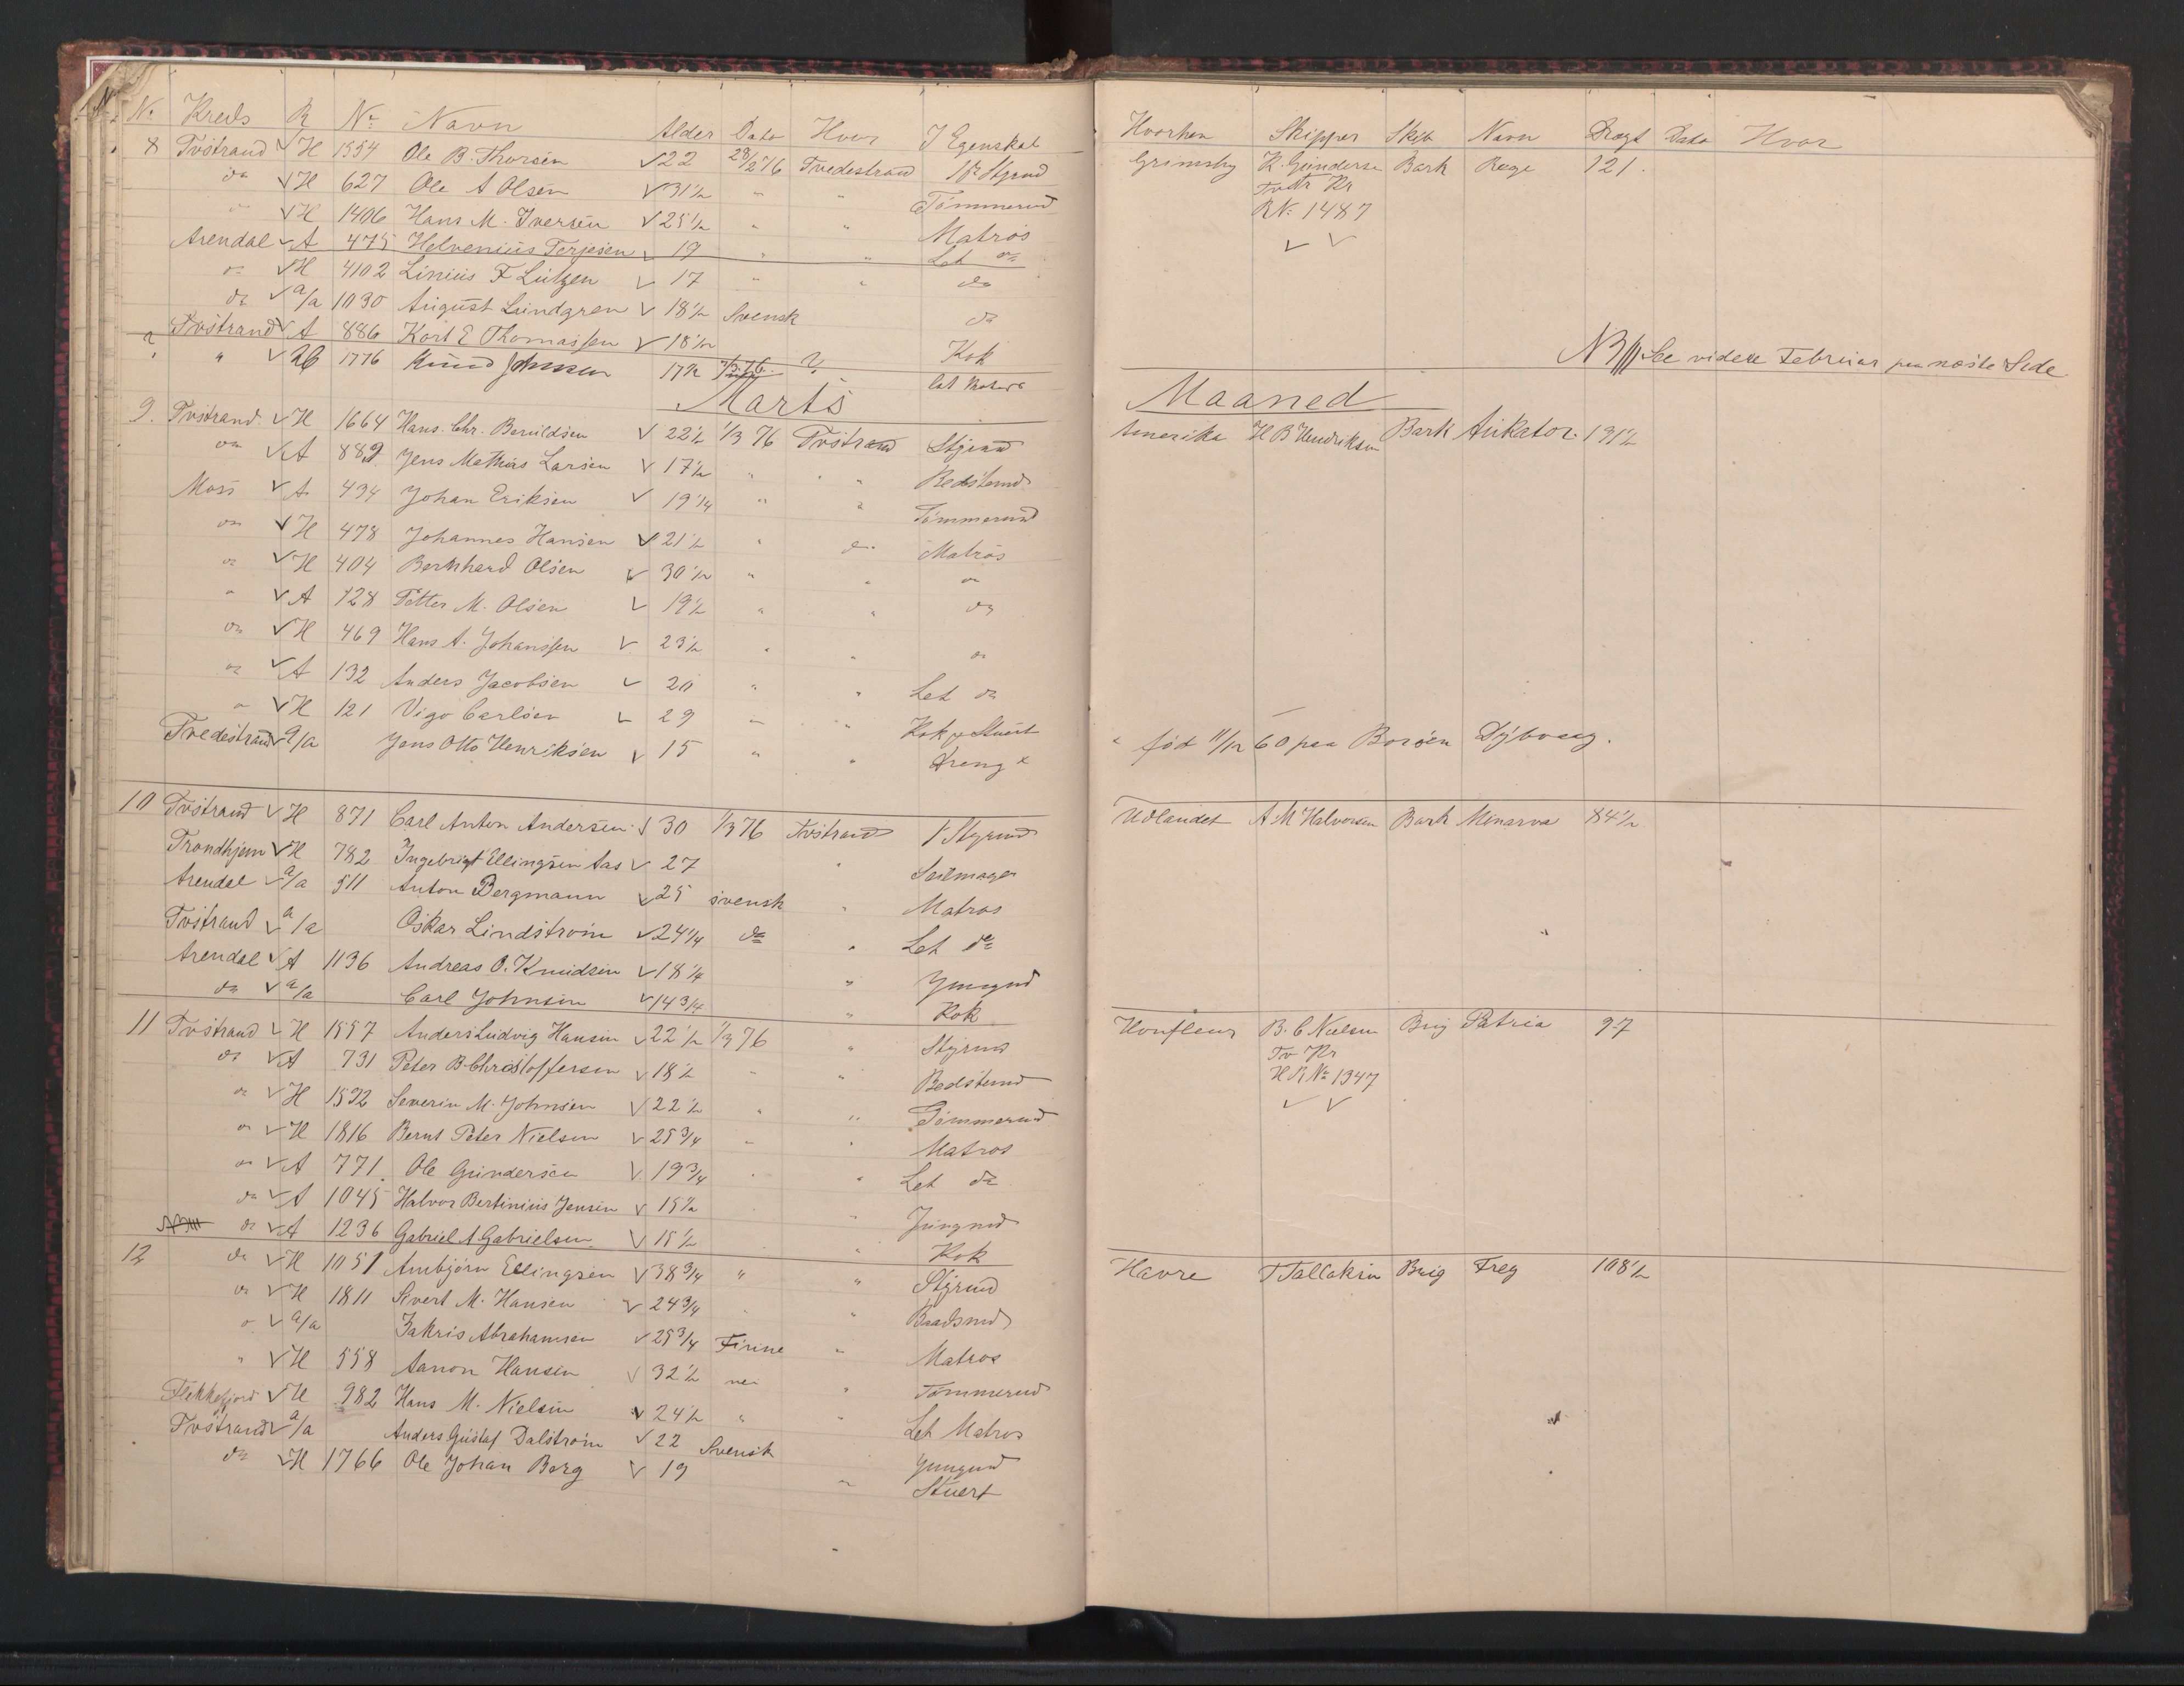 No Kreds R No Navn Alder Dato Hvor I Egenskab Hvorhen Skipper Skib Navn Dragt Dato Hvor
8 Tvstrand H 1554 Ole B. Thorsen 22 28/2 76 Tvedestrand Styrmd Grimsby K. Gundersen Bark Rege 121.
do H 627 Ole A Olsen 31½ " " Tømmermd Tvstr Kr
" H 1406 Hans M. Iversen 25½ " " Matros R No 1487
Arendal A 475 Helvenius Terjesen 19 " " Let do
do H 4102 Linius F Lützen 17 " " do
do a/a 1030 August Lundgren 18½ Svensk do
Tvstrand A 886 Kort E Thomassen 18½ Kok
? " 1776 Knud Johnsen 17½ ? Let Matros NB See videre Februar paa næste Side
Marts Maaned
9. Tvstrand H 1664 Hans. Chr. Beruldsen 22½ 1/3 76 Tvstrand Styrmd Amerika H B Hendriksen Bark Aukator. 191½
do A 889 Jens Mathias Larsen 17½ " " Bedstemd
Moss A 434 Johan Eriksen 19¼ " " Tømmermd
do H 478 Johannes Hansen 21½ " do Matros
do H 404 Bernhard Olsen 30½ " " do
" A 128 Petter M. Olsen 19½ " " do
do H 469 Hans A. Johanssen 23½ " " do
do A 132 Anders Jacobsen 20 " " Let do
do H 121 Vigo Carlsen 29 " " Kok & Stuert
Tvedestrand a/a Jens Otto Henriksen 15 " " Dreng x " fød 11/12 60 paa Borøen Dybvaag.
10 Tvstrand H 871 Carl Anton Andersen 30 1/3 76 Tvstrand 1 Styrmd Udlandet A M Halvorsen Bark Minarva 84½
Trondhjem H 782 Ingebrigt Ellingsen Aas 27 " Seilmager
Arendal a/a 511 Anton Bergmann 25 svensk " Matros
Tvstrand a/a Oskar Lindstrøm 24¼ do " Let do
Arendal A 1136 Andreas O. Knudsen 18¼ " Jungmd
do a/a Carl Johnsen 14¾ " Kok
11 Tvstrand H 1557 Anders Ludvig Hansen 22½ 1/3 76 " Styrmd Honfleur B. C Nielsen Brig Patria 97
do A 731 Peter B. Christoffersen 18½ " " Bedstemd Tv Kr
do H 1592 Severin M. Johnsen 22½ " " Tømmermd H R No 1347
do H 1816 Bernt Peter Nielsen 25¾ " " Matros
do A 771. Ole Gundersen 19¾ " " Let do
do A 1045 Halvor Bertinius Jensen 15½ " Jungmd
do A 1236 Gabriel A Gabrielsen 15½ " Kok
12 do H 1051 Anbjørn Ellingsen 38¾ " " Styrmd Havre T Tallaksen Brig Freg 108½
do H 1811 Sivert M. Hansen 24¾ " Baadsmd
do a/a Zakris Abrahamsen 25¾ Finne " Matros
" H 558 Aanon Hansen 32½ nei " Tømmermd
Flekkefjord H 982 Hans M. Nielsen 24½ " " Let Matros
Tvstrand a/a Anders Gustaf Dalstrøm 22 Svensk Jungmd
do H 1766 Ole Johan Borg 19 " Stuert